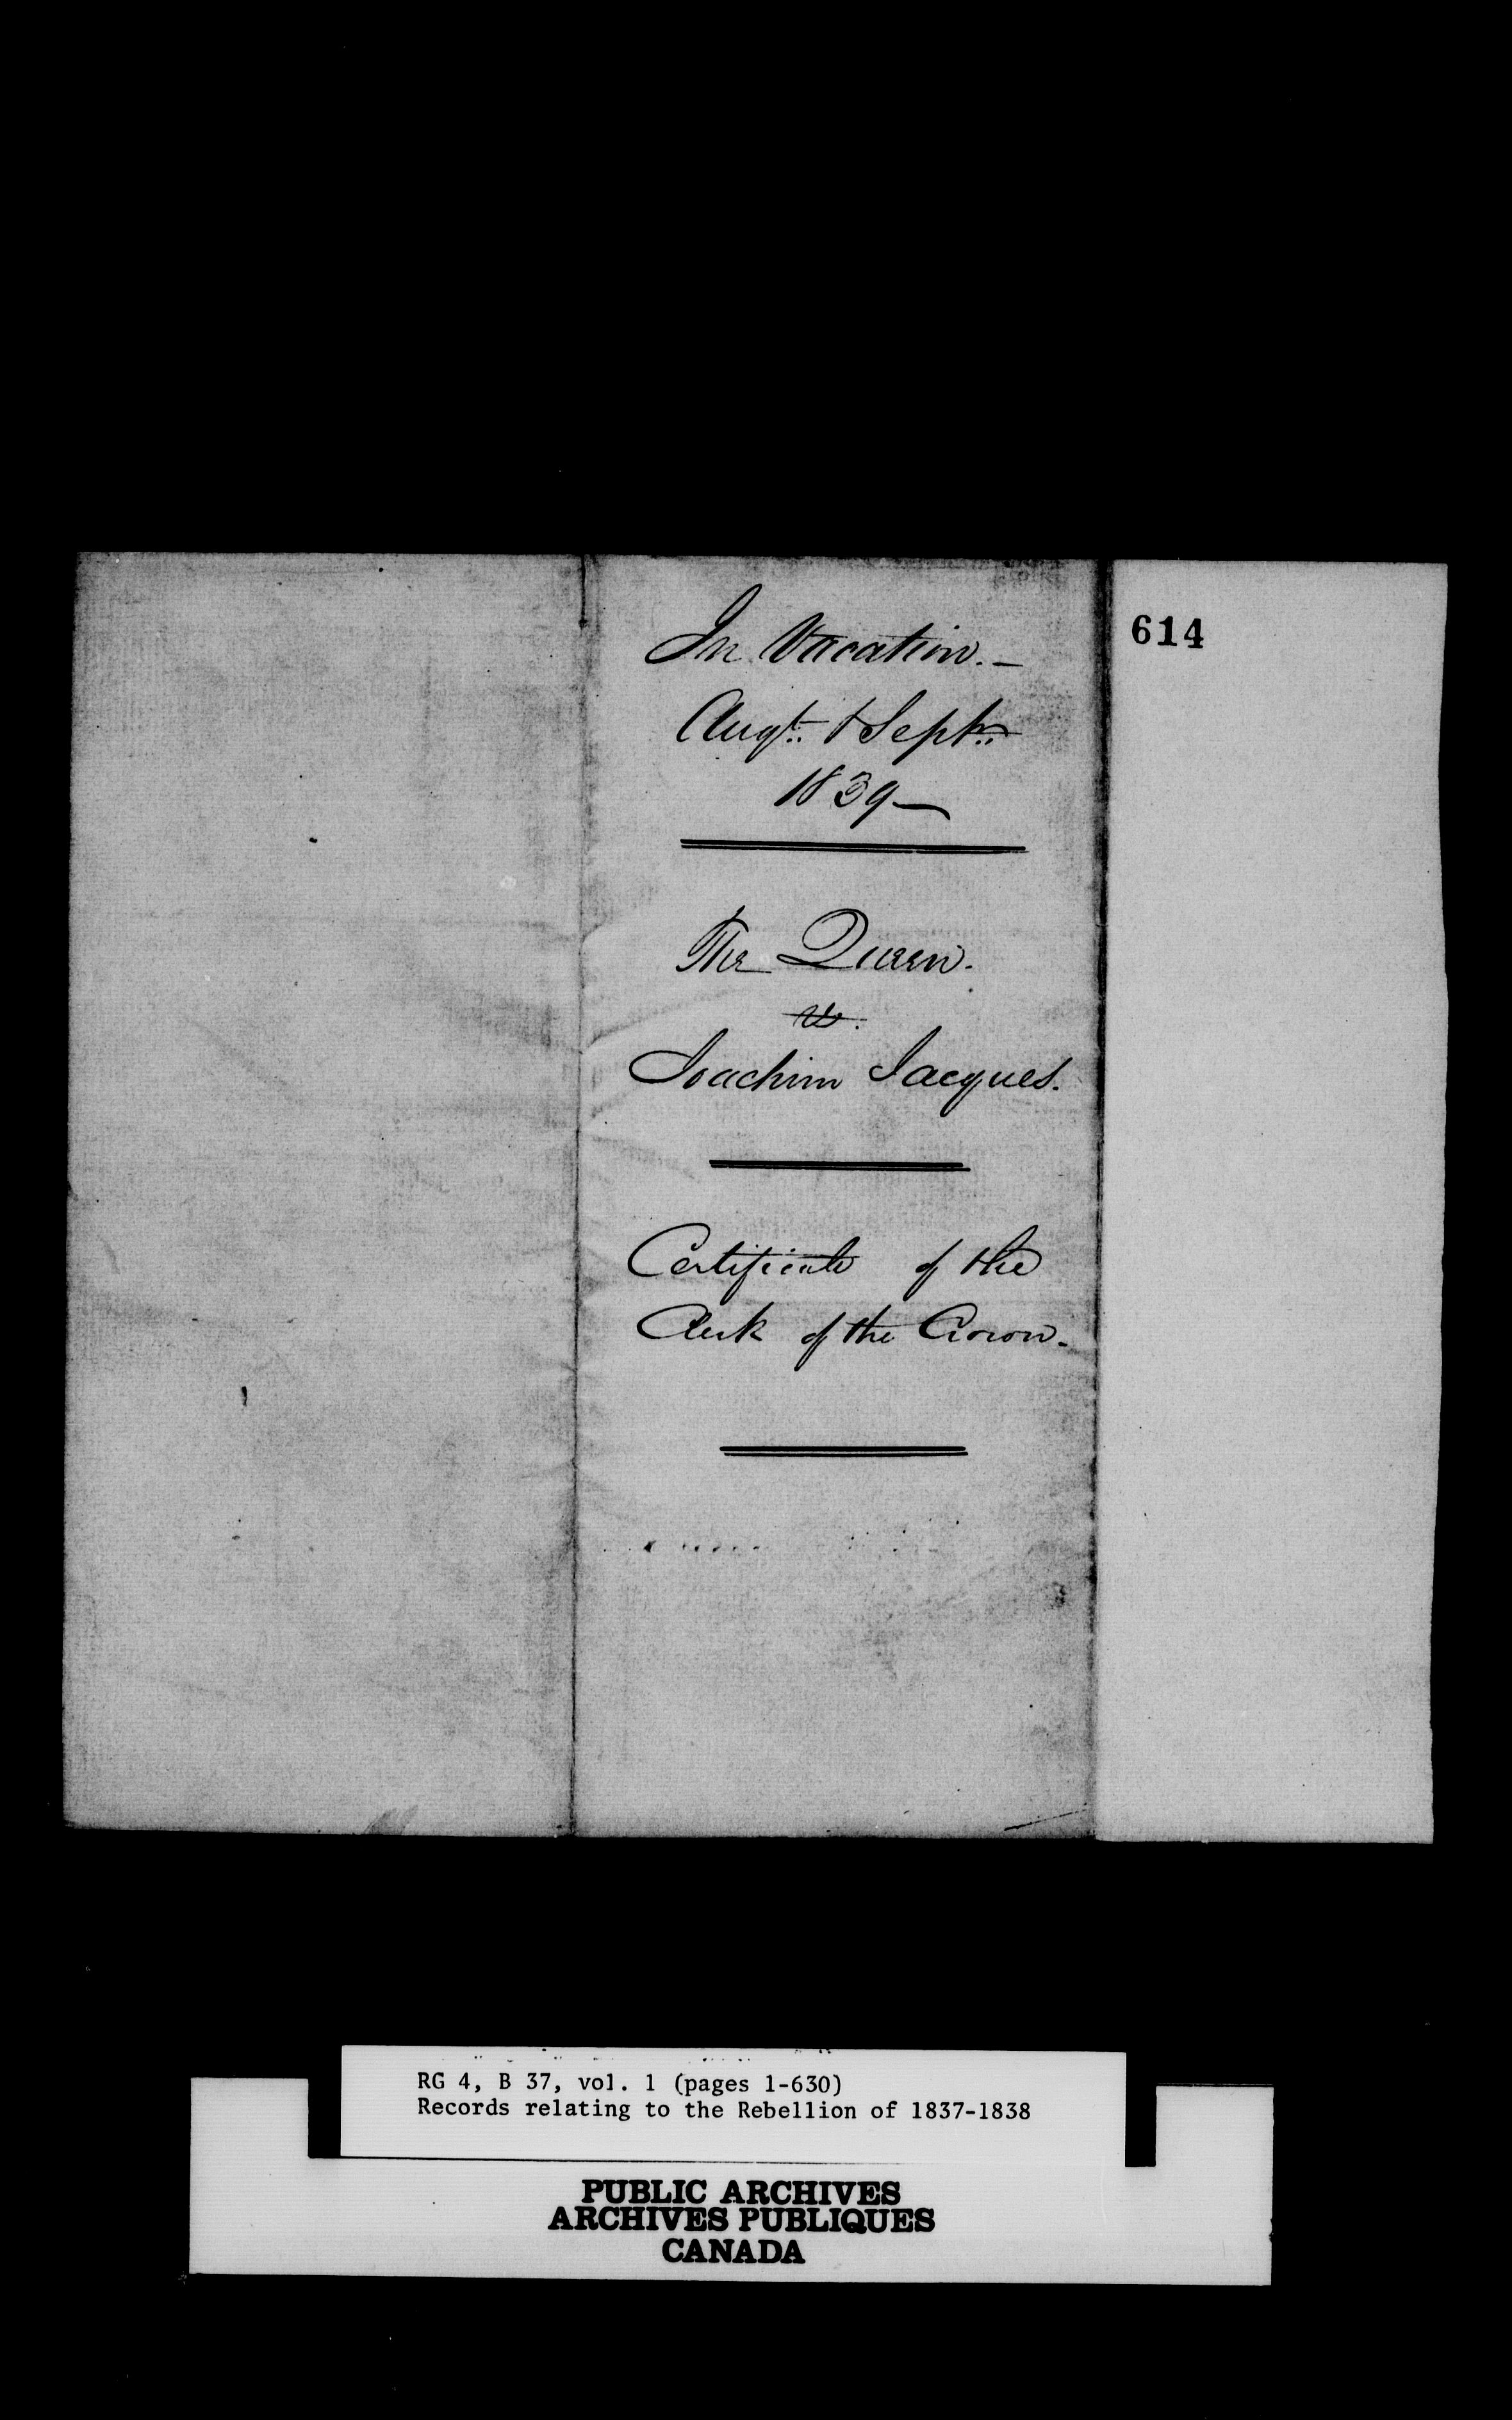 In Vacation. —
Augt. & Septr.
1839 —
The Queen.
vs.
Joachim Jacques.
Certificate of the
Clerk of the Crown.
614
RG 4, B 37, vol. 1 (pages 1-630)
Records relating to the Rebellion of 1837-1838
PUBLIC ARCHIVES
ARCHIVES PUBLIQUES
CANADA